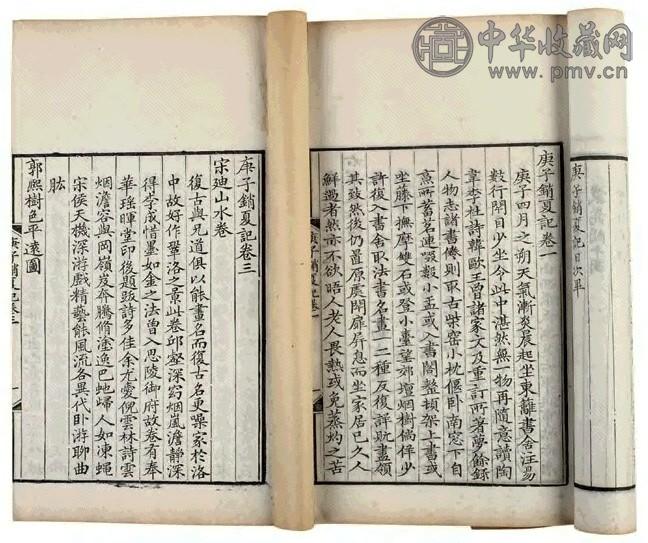 中华收藏网
www.pmv.cn
庚子銷夏記目次畢
庚子銷夏記卷一
庚子四月之朔天氣漸炎晨起坐東籬書舍注易
數行閉目少坐令此中湛然無一物再隨意讀陶
韋李杜詩韓歐王曾諸家文及重訂所著夢餘錄
人物志諸書倦則取古柴窰小枕偃卧南窻下自
烹所蓄名連啜數小盂或入書閣整頓架上書或
坐藤下撫摩雙石或登小臺望郊壇烟樹倘佯少
許復入書舍取法書名畫一二種反復詳玩盡領
其致然後仍置原處閉扉屏息而坐家居已久人
鮮過者然亦不欲晤人老人畏熱或免蒸灼之苦
庚子銷夏記卷一
一
庚子銷夏記卷三
宋迪山水卷
復古與兄道俱以能畫名而復古名更噪家於洛
中故好作鞏洛之景此卷邱壑深窈烟嵐澹静深
得李成惜墨如金之法曾入思陵御府故卷有奉
華瑤暉堂印後題跋詩多佳余尤愛倪雲林詩雲
烟澹容與岡嶺岌奔騰脩塗逸巴虵歸人如凍蠅
宋侯天機深游戲精藝能風流各異代卧游聊曲
肱
郭熙樹色平遠圖
庚子銷夏記卷三
一